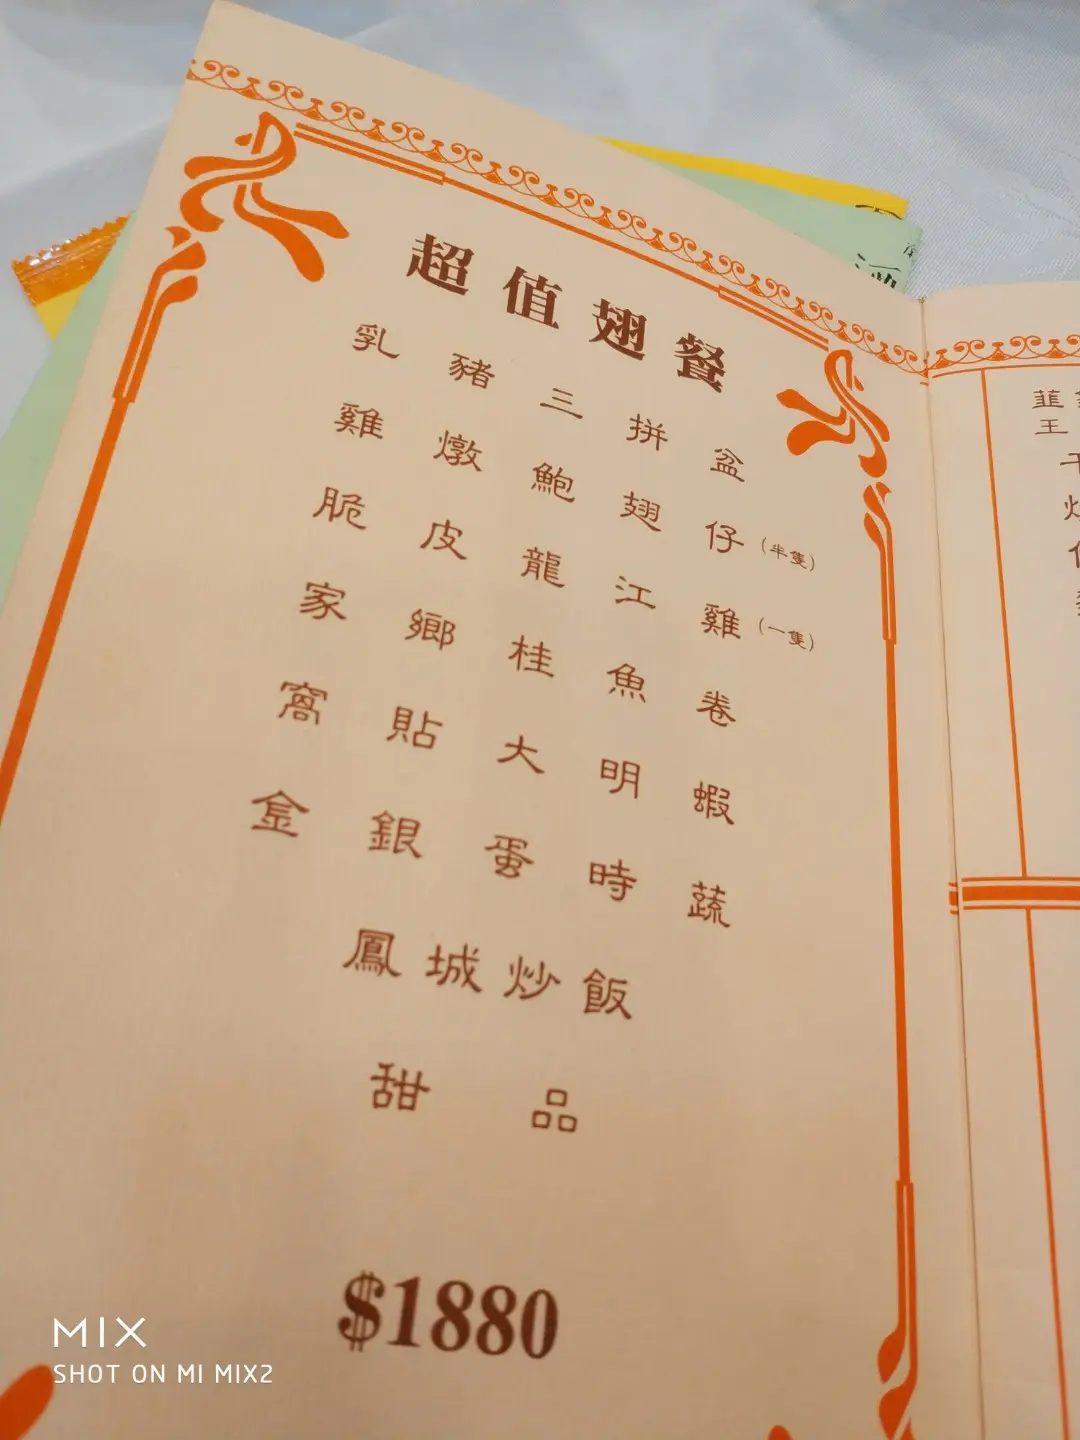 超值翅餐
乳豬三拼盆
雞燉鮑翅仔(半隻)
脆皮龍江雞(一隻)
家鄉桂魚卷
窩貼大明蝦
金銀蛋時蔬
鳳城炒飯
甜品
$1880
韮
王
MIX
SHOT ON MI MIX2